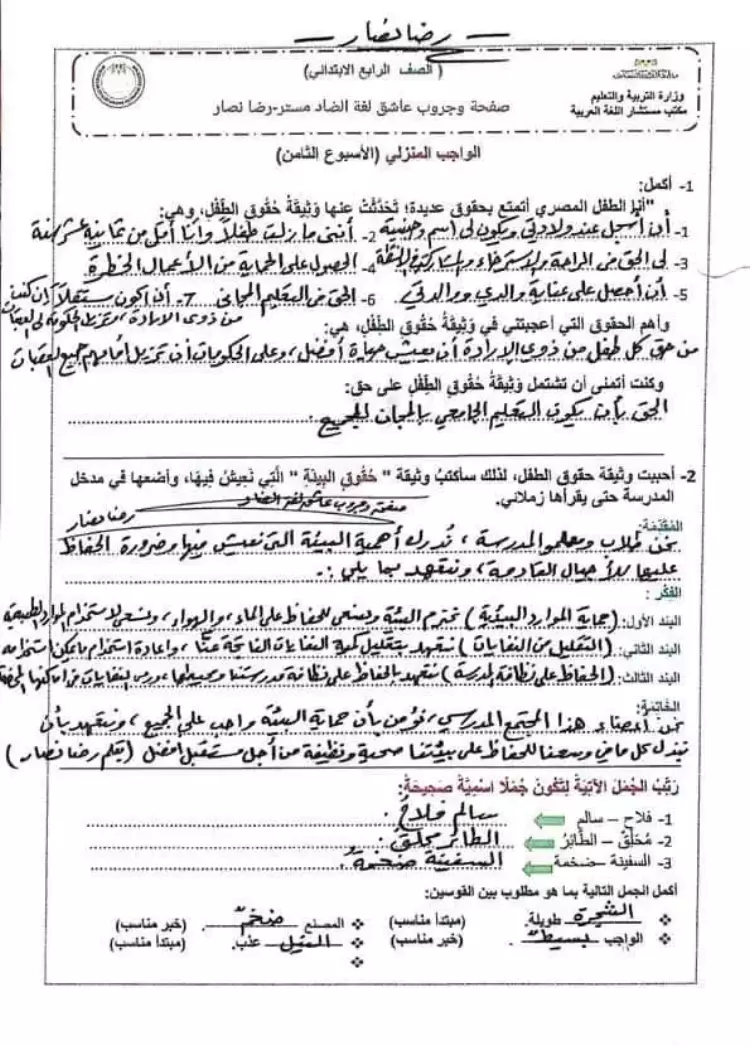 رضا نصار
( الصف الرابع الابتدائي)
وزارة التربية والتعليم
مكتب مستشار اللغة العربية
صفحة وجروب عاشق لغة الضاد مستر-رضا نصار
الواجب المنزلي (الأسبوع الثامن)
1- أكمل:
"أنا الطفل المصري أتمتع بحقوق عديدة؛ تَحَدَّثَتْ عنها وَثِيقَةُ حُقُوقِ الطِّفْلِ، وهي:
1- أن أسجل عند ولادتي ويكون لي اسم وجنسية 2- أنني ما زلت طفلاً وأنا أقل من ثمانية عشر سنة
3- لي الحق في الراحة والاسترخاء والمشاركة 4- الحصول على الحماية من الأعمال الخطرة
5- أن أحصل على عناية والدي ووالدتي 6- الحق في التعليم المجاني 7- أن أكون مستقلاً إن كنت
من ذوي الإرادة،
وأهم الحقوق التي أعجبتني في وَثِيقَةِ حُقُوقِ الطِّفْلِ، هي:
من حق كل طفل من ذوي الإرادة أن يعيش حياة أفضل، وعلى الحكومات أن تزيل أمامهم جميع العقبات
وكنت أتمنى أن تشتمل وَثِيقَةُ حُقُوقِ الطِّفْلِ على حق:
الحق بأن يكون التعليم الجامعي بالمجان للجميع .
2- أحببت وثيقة حقوق الطفل، لذلك سأكتبُ وثيقة " حُقُوقِ البِيئَةِ " الَّتِي نَعِيشُ فِيهَا، وأضعها في مدخل
المدرسة حتى يقرأها زملائي.
صفحة وجروب عاشق لغة الضاد
رضا نصار
المُقَدِّمَة:
نحن طلاب ومعلمو المدرسة، نُدرك أهمية البيئة التي نعيش فيها وضرورة الحفاظ
عليها للأجيال القادمة، ونتعهد بما يلي :-
الفِكَر :
البند الأول: (حماية الموارد البيئية) نحترم البيئة ونسعى للحفاظ على الماء، والهواء، ونسعى لاستخدام الموارد الطبيعية
البند الثاني: (التقليل من النفايات) نتعهد بتقليل كمية النفايات الناتجة عنّا، وإعادة استخدام ما يمكن استخدامه
البند الثالث: (الحفاظ على نظافة المدرسة) نتعهد بالحفاظ على نظافة مدرستنا ومحيطها، ورمي النفايات في أماكنها المخصصة
الخَاتِمَة:
نحن أعضاء هذا المجتمع المدرسي، نؤمن بأن حماية البيئة واجب على الجميع، ونتعهد بأن
نبذل كل ما في وسعنا للحفاظ على بيئتنا صحية ونظيفة من أجل مستقبل أفضل (بقلم رضا نصار)
رَتِّبْ الجُمَلَ الآتِيَةَ لِتُكَوِّنَ جُمَلًا اسْمِيَّةً صَحِيحَةً:
1- فلاح – سالم سالم فلاحٌ .
2- مُحَلِّقٌ – الطَّائِرُ الطائر محلقٌ .
3- السفينة –ضخمة السفينة ضخمةٌ
أكمل الجمل التالية بما هو مطلوب بين القوسين:
الشجرة طويلة. (مبتدأ مناسب) المصنع ضخمٌ . (خبر مناسب)
الواجب بسيطٌ . (خبر مناسب) النيل عذب. (مبتدأ مناسب)